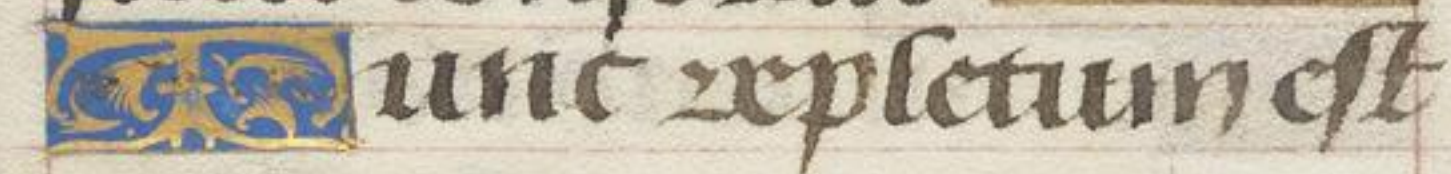 Tunc repletum est